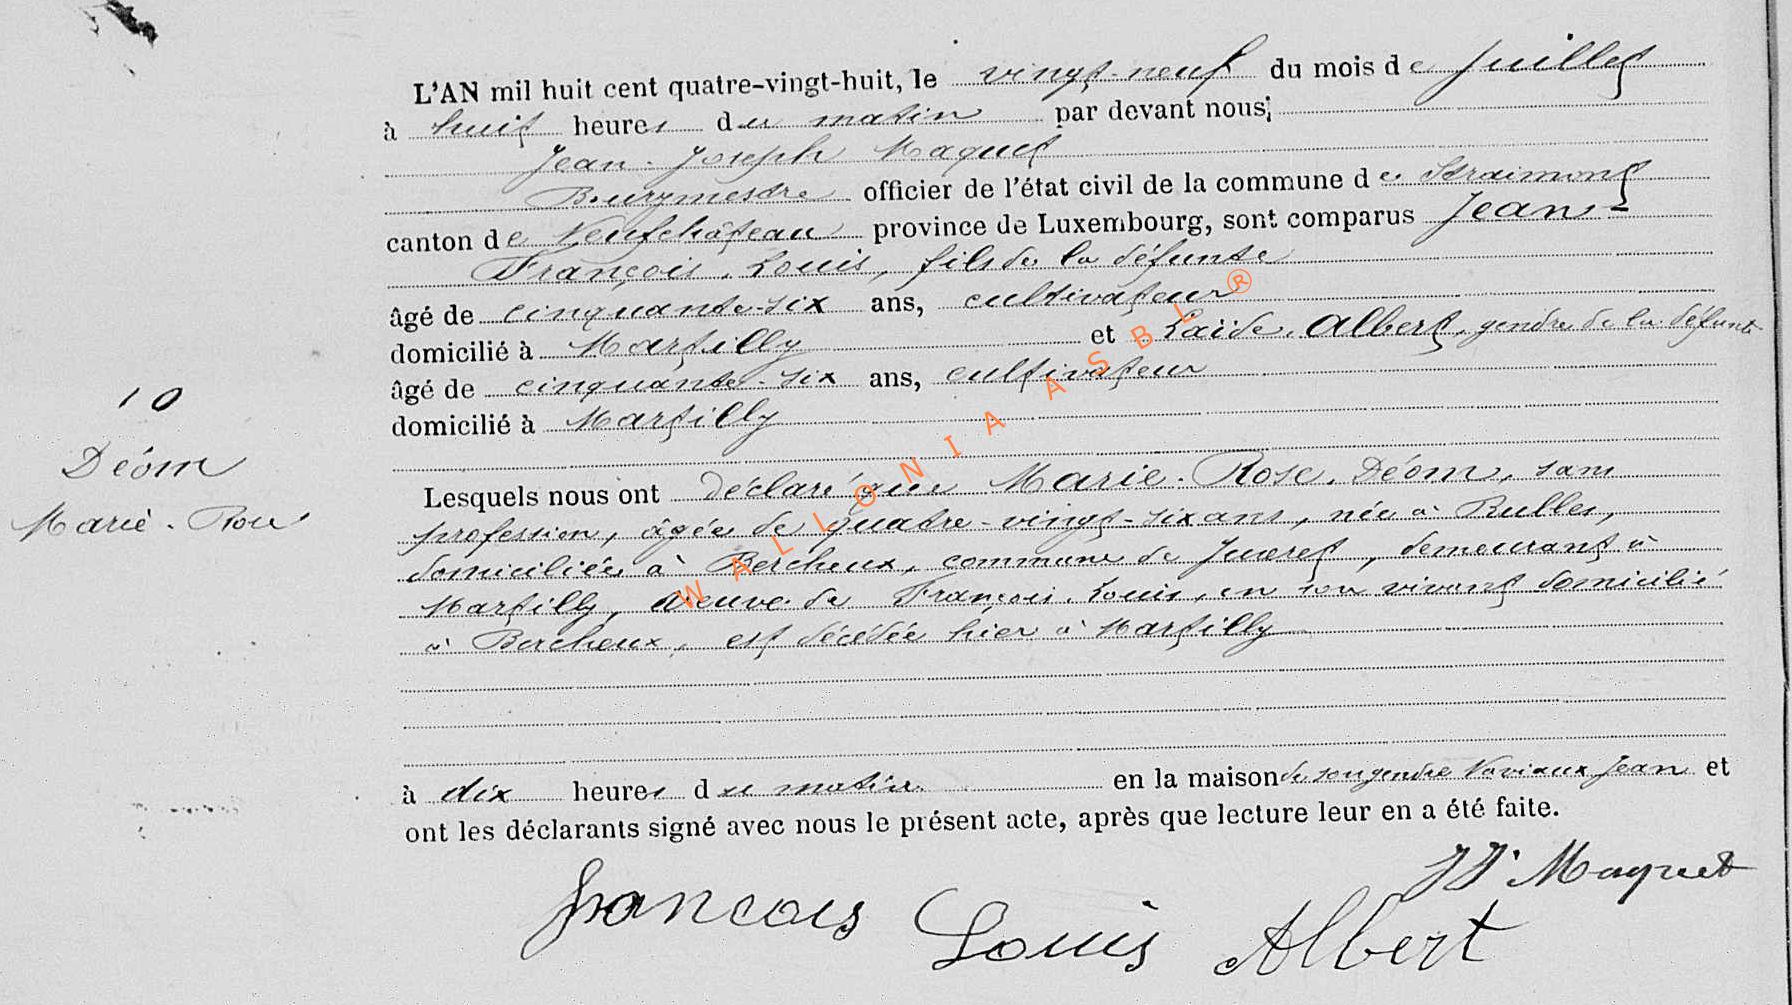 L'AN mil huit cent quatre-vingt-huit, le vingt-neuf du mois de Juillet
à huit heures du matin par devant nous;
Jean-Joseph Maquet
Bourgmestre officier de l'état civil de la commune de Straimont
canton de Neufchâteau province de Luxembourg, sont comparus Jean-
François, Louis, fils de la défunte
âgé de cinquante-six ans, cultivateur
domicilié à Martilly et Laide, Albert, gendre de la défunte
âgé de cinquante-six ans, cultivateur
domicilié à Martilly
10
Déom
Marie-Rose
Lesquels nous ont déclaré que Marie-Rose, Déom, sans
profession, âgée de quatre-vingt-six ans, née à Rulles,
domiciliée à Bercheux, commune de Juseret, demeurant à
Martilly, veuve de François, Louis, en son vivant domicilié
à Bercheux, est décédée hier à Martilly
à dix heures du matin en la maison de son gendre Naviaux Jean et
ont les déclarants signé avec nous le présent acte, après que lecture leur en a été faite.
JJ. Maquet
francois Louis Albert
WALLONIA ASBL ®